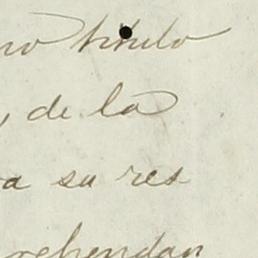 no título
, de la
a su res
rehendan